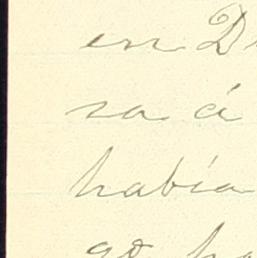 en D
sa á
había
go ha